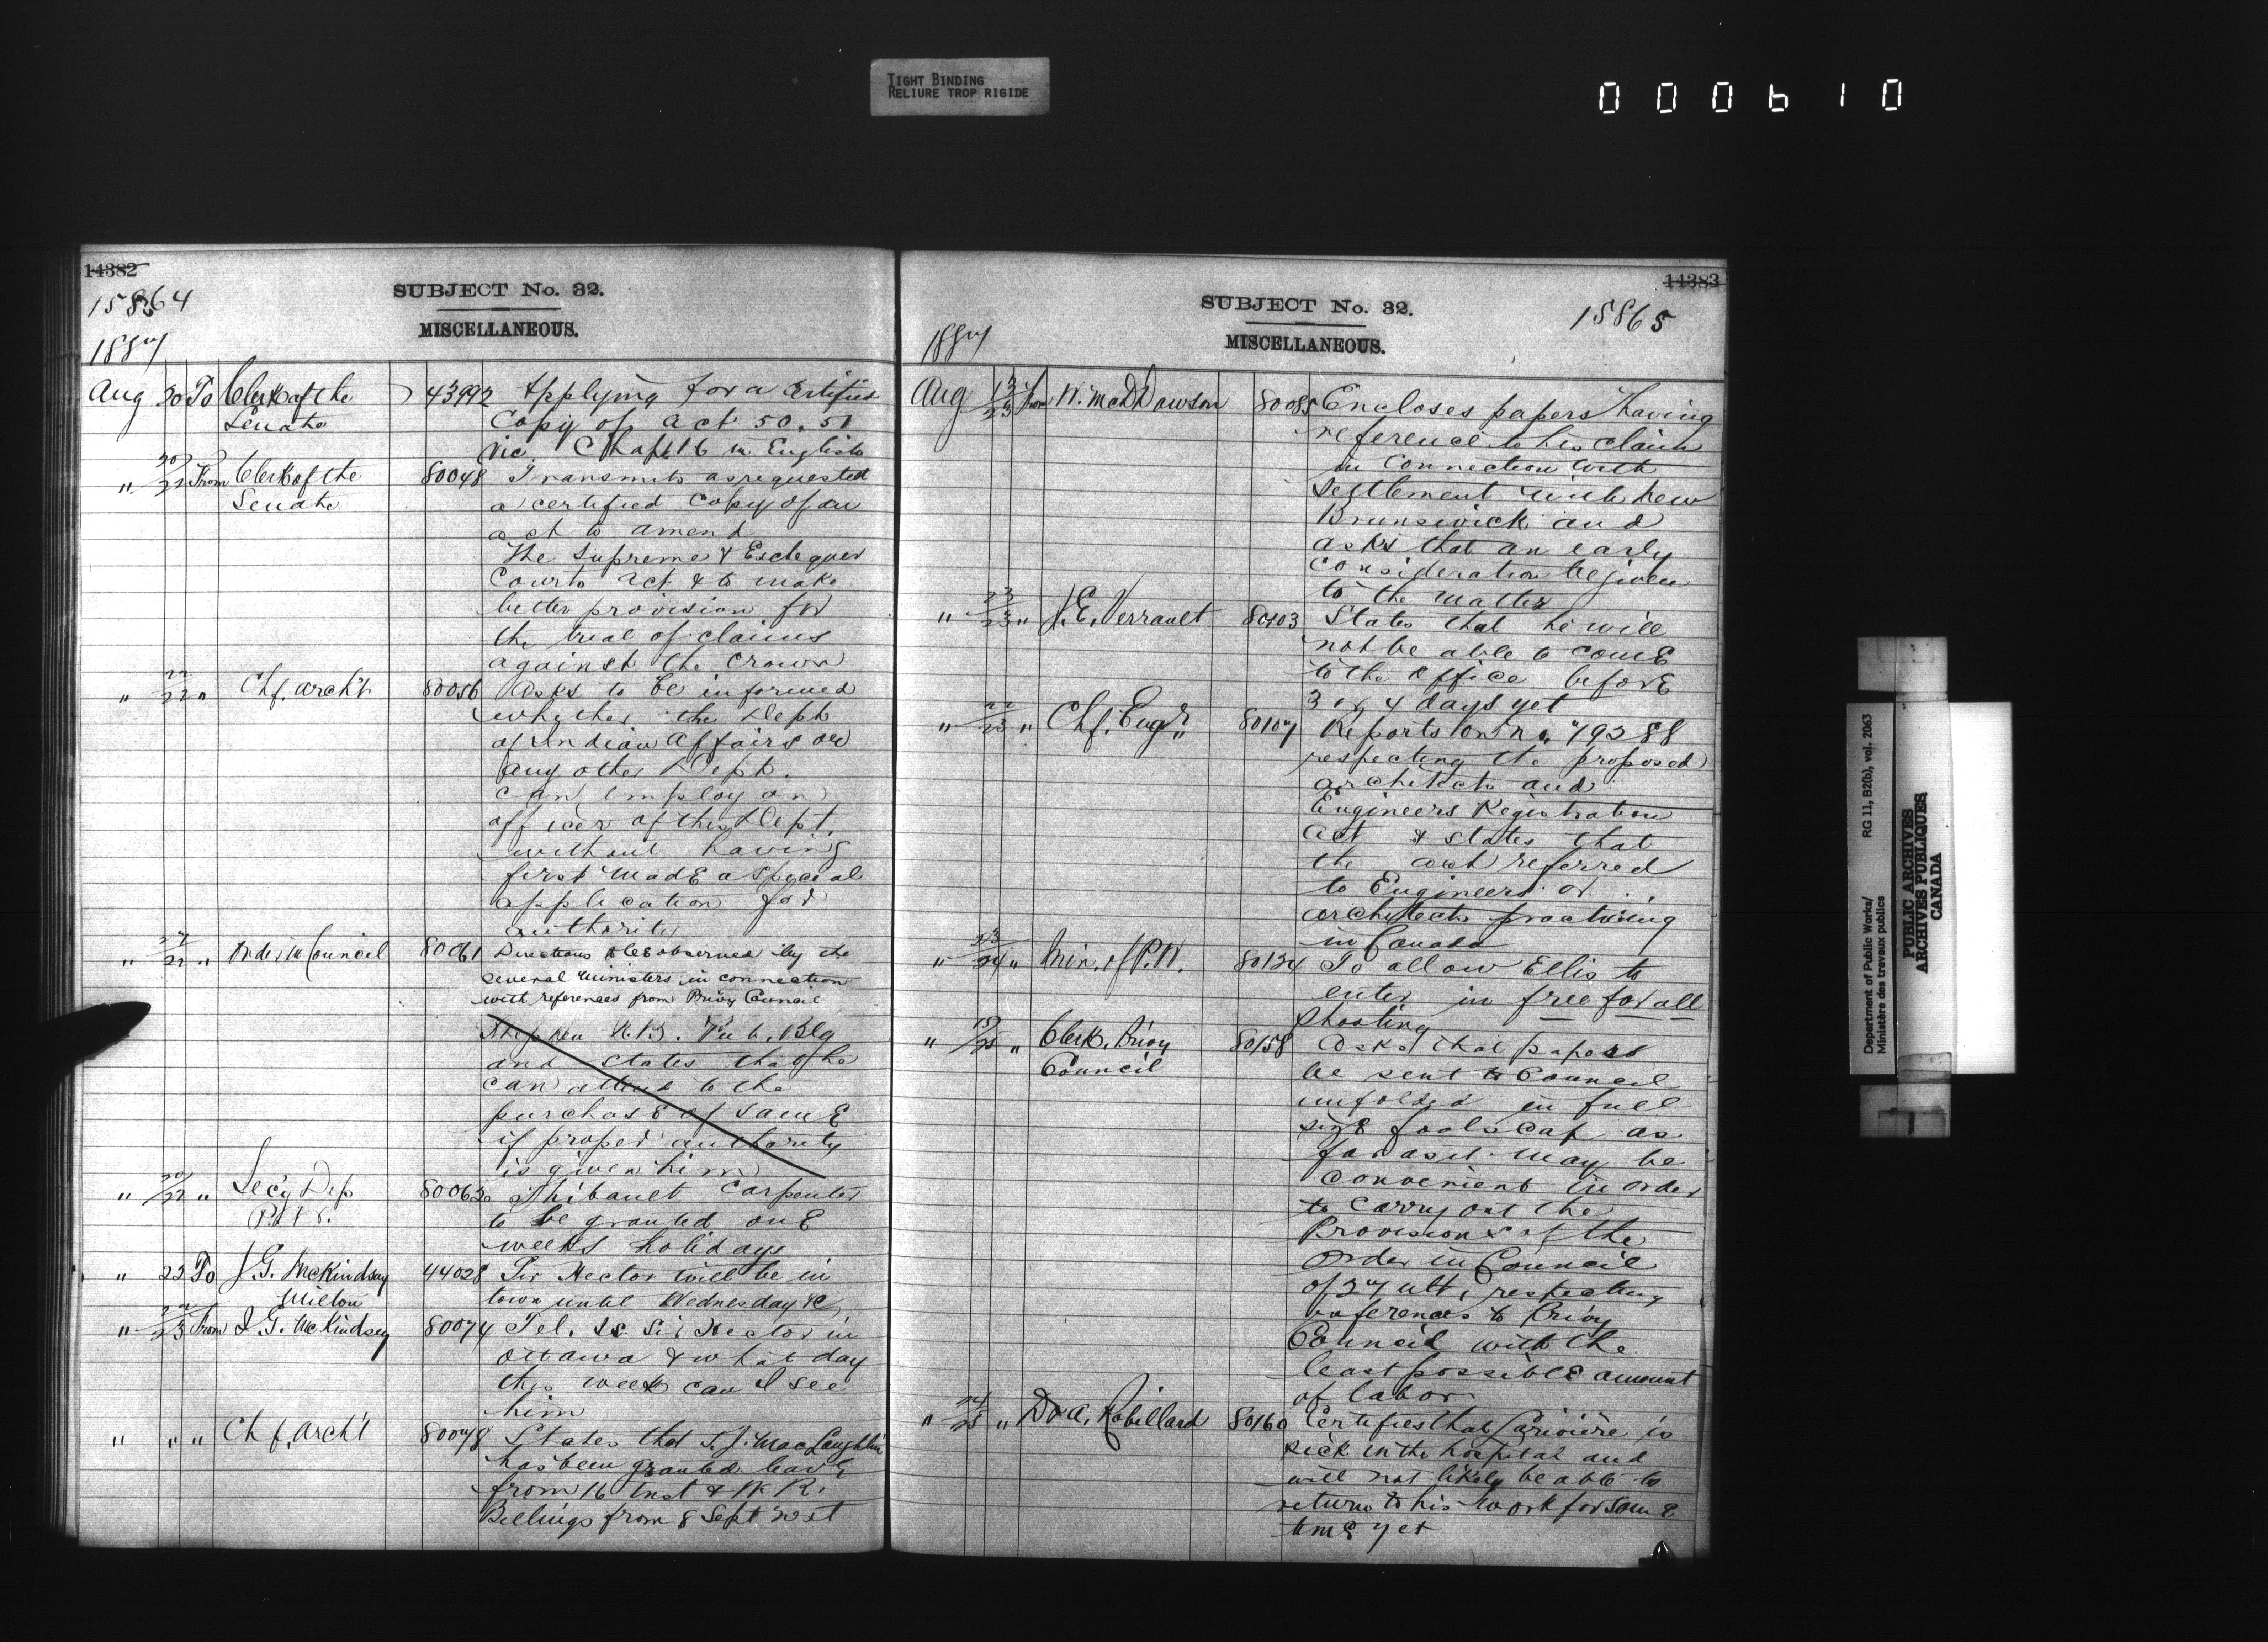 TIGHT BINDING
RELIURE TROP RIGIDE
000610
14382
15864
SUBJECT No. 32.
MISCELLANEOUS.
1887
Aug 20 To Clerk of the 43992 Applying for a Certified
Senate Copy of act 50.51
Vic. Chap 16 in English
" 20/22 From Clerk of the 80048 Transmits as requested
Senate a certified Copy of an
act to amend
The Supreme & Exchequer
Courts Act & to make
better provision for
the trial of claims
against the Crown
" 22/22 " Chf. Arch't 80056 Asks to be informed
whether the Dept
of Indian Affairs or
any other Dept.
can employ an
officer of this Dept.
without having
first made a special
application for
authority
" 27/22 " Order in Council 80061 Directions to be observed by the
several Ministers in connection
with references from Privy Council
Stephen N.B. Pub. Blg
and states that he
can attend to the
purchase of same
if proper authority
is given him
" 20/22 " Sec'y Dep 80063 Thibault Carpenter
P.W. to be granted one
weeks holidays
" 23 To J.G. McKindsay 44028 Sir Hector will be in
Milton town until Wednesday &c
" 22/23 From J.G. McKindsey 80074 Tel. Is Sir Hector in
Ottawa & what day
this week can I see
him
" " " Chf. Arch't 80078 States that S.J. MacLaughlin
has been granted leave
from 16 Inst & W.R.
Billings from 8 Sept next
14383
15865
SUBJECT No. 32.
MISCELLANEOUS.
1887
Aug 13/23 From W. McD Dawson 80085 Encloses papers having
reference to his claim
in connection with
settlement with New
Brunswick and
asks that an early
consideration be given
to the matter
" 23/23 " J.E. Verrault 80103 States that he will
not be able to come
to the office before
3 or 4 days yet
" 22/23 " Chf. Engr. 80107 Reports on no. 79288
respecting the proposed
architects and
Engineers Registration
Act & states that
the act referred
to Engineers or
architects practising
in Canada
" 23/24 " Min. of P.W. 80134 To allow Ellis to
enter in free for all
shooting
" 19/25 " Clerk, Privy 80158 Asks that papers
Council be sent to Council
unfolded in full
size foolscap as
far as it may be
convenient in order
to carry out the
Provisions of the
Order in Council
of 27 ult, respecting
references to Privy
Council with the
least possible amount
of labor
" 24/25 " Dr A. Robillard 80160 Certifies that Lariviére is
sick in the hospital and
will not likely be able to
return to his work for some
time yet
Department of Public Works/ RG 11, B2(b), vol. 2063
Ministère des travaux publics
PUBLIC ARCHIVES
ARCHIVES PUBLIQUES
CANADA